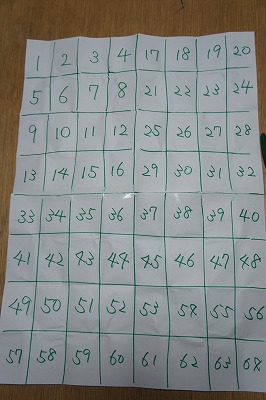 1 2 3 4 17 18 19 20
5 6 7 8 21 22 23 24
9 10 11 12 25 26 27 28
13 14 15 16 29 30 31 32
33 34 35 36 37 38 39 40
41 42 43 44 45 46 47 48
49 50 51 52 53 54 55 56
57 58 59 60 61 62 63 64